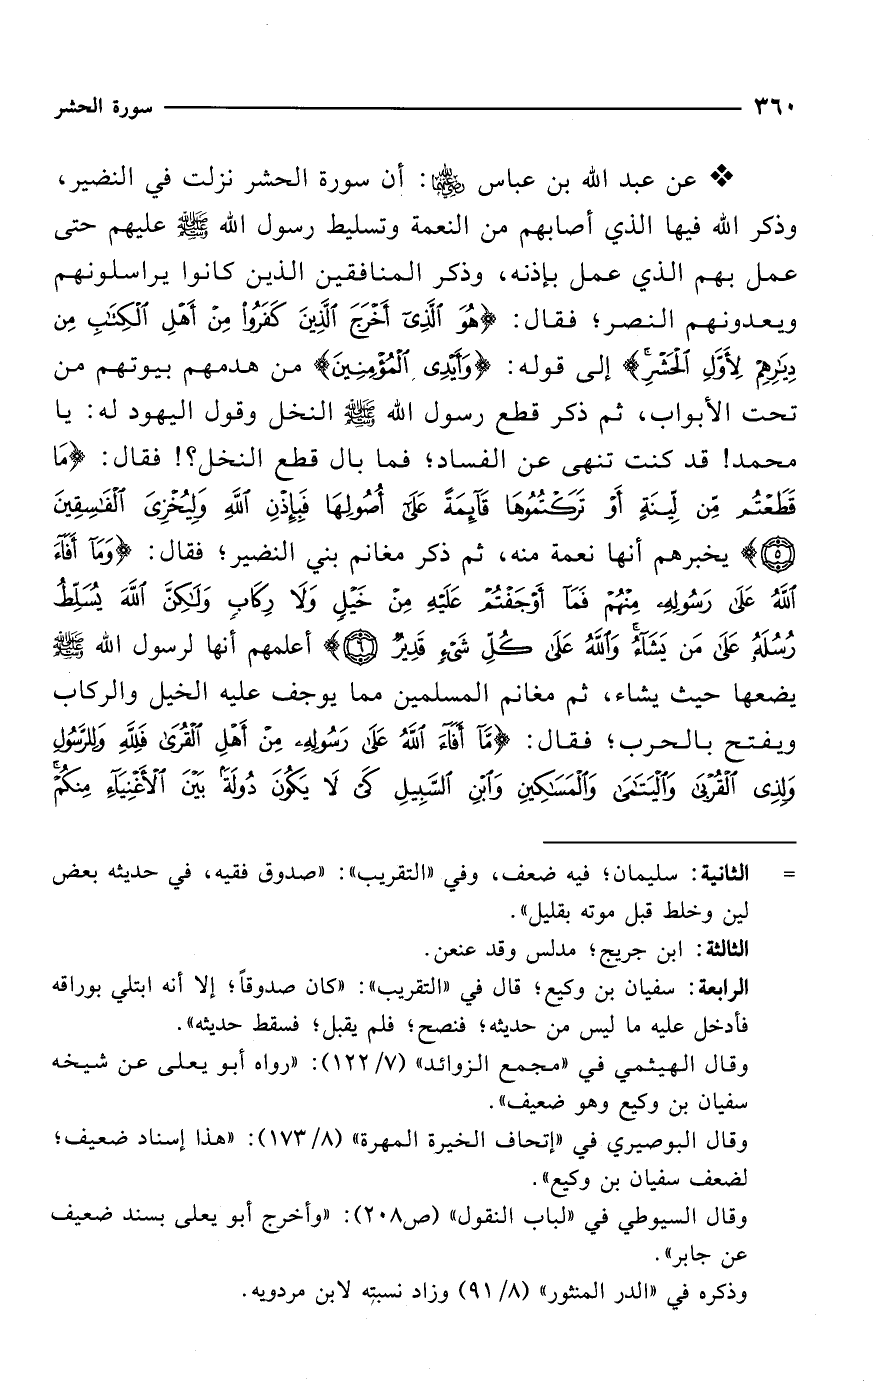 ٣٦٠ سورة الحشر
❖ عن عبد الله بن عباس رضي الله عنهما: أن سورة الحشر نزلت في النضير،
وذكر الله فيها الذي أصابهم من النعمة وتسليط رسول الله ﷺ عليهم حتى
عمل بهم الذي عمل بإذنه، وذكر المنافقين الذين كانوا يراسلونهم
ويعدونهم النصر؛ فقال: ﴿هُوَ ٱلَّذِىٓ أَخْرَجَ ٱلَّذِينَ كَفَرُوا۟ مِنْ أَهْلِ ٱلْكِتَٰبِ مِن
دِيَٰرِهِمْ لِأَوَّلِ ٱلْحَشْرِ ۚ﴾ إلى قوله: ﴿وَأَيْدِى ٱلْمُؤْمِنِينَ﴾ من هدمهم بيوتهم من
تحت الأبواب، ثم ذكر قطع رسول الله ﷺ النخل وقول اليهود له: يا
محمد! قد كنت تنهى عن الفساد؛ فما بال قطع النخل؟! فقال: ﴿مَا
قَطَعْتُم مِّن لِّينَةٍ أَوْ تَرَكْتُمُوهَا قَآئِمَةً عَلَىٰٓ أُصُولِهَا فَبِإِذْنِ ٱللَّهِ وَلِيُخْزِىَ ٱلْفَٰسِقِينَ
﴿٥﴾﴾ يخبرهم أنها نعمة منه، ثم ذكر مغانم بني النضير؛ فقال: ﴿وَمَآ أَفَآءَ
ٱللَّهُ عَلَىٰ رَسُولِهِۦ مِنْهُمْ فَمَآ أَوْجَفْتُمْ عَلَيْهِ مِنْ خَيْلٍ وَلَا رِكَابٍ وَلَٰكِنَّ ٱللَّهَ يُسَلِّطُ
رُسُلَهُۥ عَلَىٰ مَن يَشَآءُ ۚ وَٱللَّهُ عَلَىٰ كُلِّ شَىْءٍ قَدِيرٌ ﴿٦﴾﴾ أعلمهم أنها لرسول الله ﷺ
يضعها حيث يشاء، ثم مغانم المسلمين مما يوجف عليه الخيل والركاب
ويفتح بالحرب؛ فقال: ﴿مَّآ أَفَآءَ ٱللَّهُ عَلَىٰ رَسُولِهِۦ مِنْ أَهْلِ ٱلْقُرَىٰ فَلِلَّهِ وَلِلرَّسُولِ
وَلِذِى ٱلْقُرْبَىٰ وَٱلْيَتَٰمَىٰ وَٱلْمَسَٰكِينِ وَٱبْنِ ٱلسَّبِيلِ كَىْ لَا يَكُونَ دُولَةًۢ بَيْنَ ٱلْأَغْنِيَآءِ مِنكُمْ ۚ
= الثانية: سليمان؛ فيه ضعف، وفي «التقريب»: «صدوق فقيه، في حديثه بعض
لين وخلط قبل موته بقليل».
الثالثة: ابن جريج؛ مدلس وقد عنعن.
الرابعة: سفيان بن وكيع؛ قال في «التقريب»: «كان صدوقاً؛ إلا أنه ابتلي بوراقه
فأدخل عليه ما ليس من حديثه؛ فنصح؛ فلم يقبل؛ فسقط حديثه».
وقال الهيثمي في «مجمع الزوائد» (٧/ ١٢٢): «رواه أبو يعلى عن شيخه
سفيان بن وكيع وهو ضعيف».
وقال البوصيري في «إتحاف الخيرة المهرة» (٨/ ١٧٣): «هذا إسناد ضعيف؛
لضعف سفيان بن وكيع».
وقال السيوطي في «لباب النقول» (ص٢٠٨): «وأخرج أبو يعلى بسند ضعيف
عن جابر».
وذكره في «الدر المنثور» (٨/ ٩١) وزاد نسبته لابن مردويه.